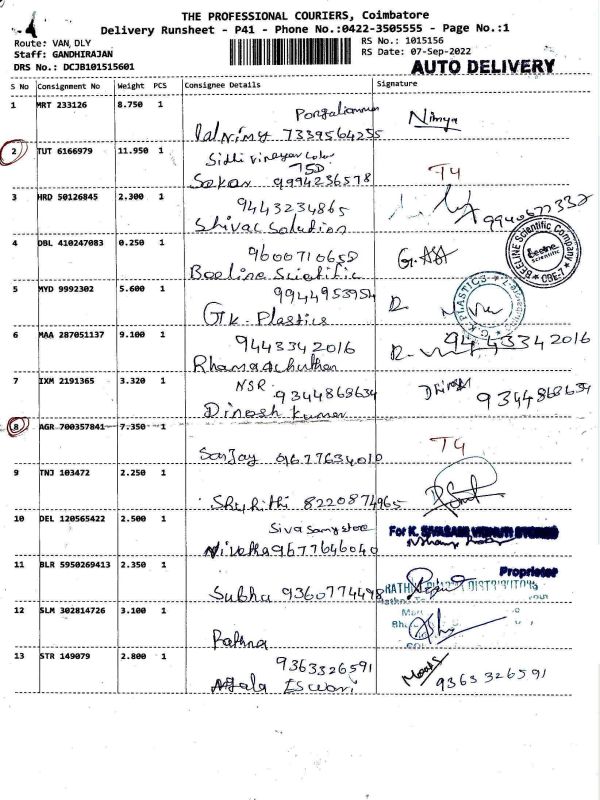 THE PROFESSIONAL COURIERS, Coimbatore
Delivery Runsheet - P41 - Phone No.:0422-3505555 - Page No.:1
Route: VAN, DLY
RS No.: 1015156
Staff: GANDHIRAJAN
RS Date: 07-Sep-2022
DRS No.: DCJB101515601
AUTO DELIVERY
S No Consignment No Weight PCS Consignee Details Signature
1 MRT 233126 8.750 1
7339564255 Nimya
2 TUT 6166979 11.950 1
Sekar 9994236578 T4
3 HRD 50126845 2.300 1 9443234865
Shivac Solution 9940577332
4 DBL 410247083 0.250 1 9600710658
Beeline Scientific
BEELINE Scientific Company
Beeline Scientific
CBE-7
5 MYD 9992302 5.600 1 9944953954
G.K. Plastics
G.K. PLASTICS
6 MAA 287051137 9.100 1 9443342016 9443342016
7 IXM 2191365 3.320 1 NSR 9344868634
Dinesh Kumar Dinesh 9344868634
8 AGR 700357841 7.350 1
Sanjay 9677634010 T4
9 TNJ 103472 2.250 1
8220874965
10 DEL 120565422 2.500 1 Sivasamy store
Nivetha 9677646040
For K.
11 BLR 5950269413 2.350 1 Proprietor
Subha 9360774498
12 SLM 302814726 3.100 1
Rathna
13 STR 149079 2.800 1 9363326591
Eswari 9363326591